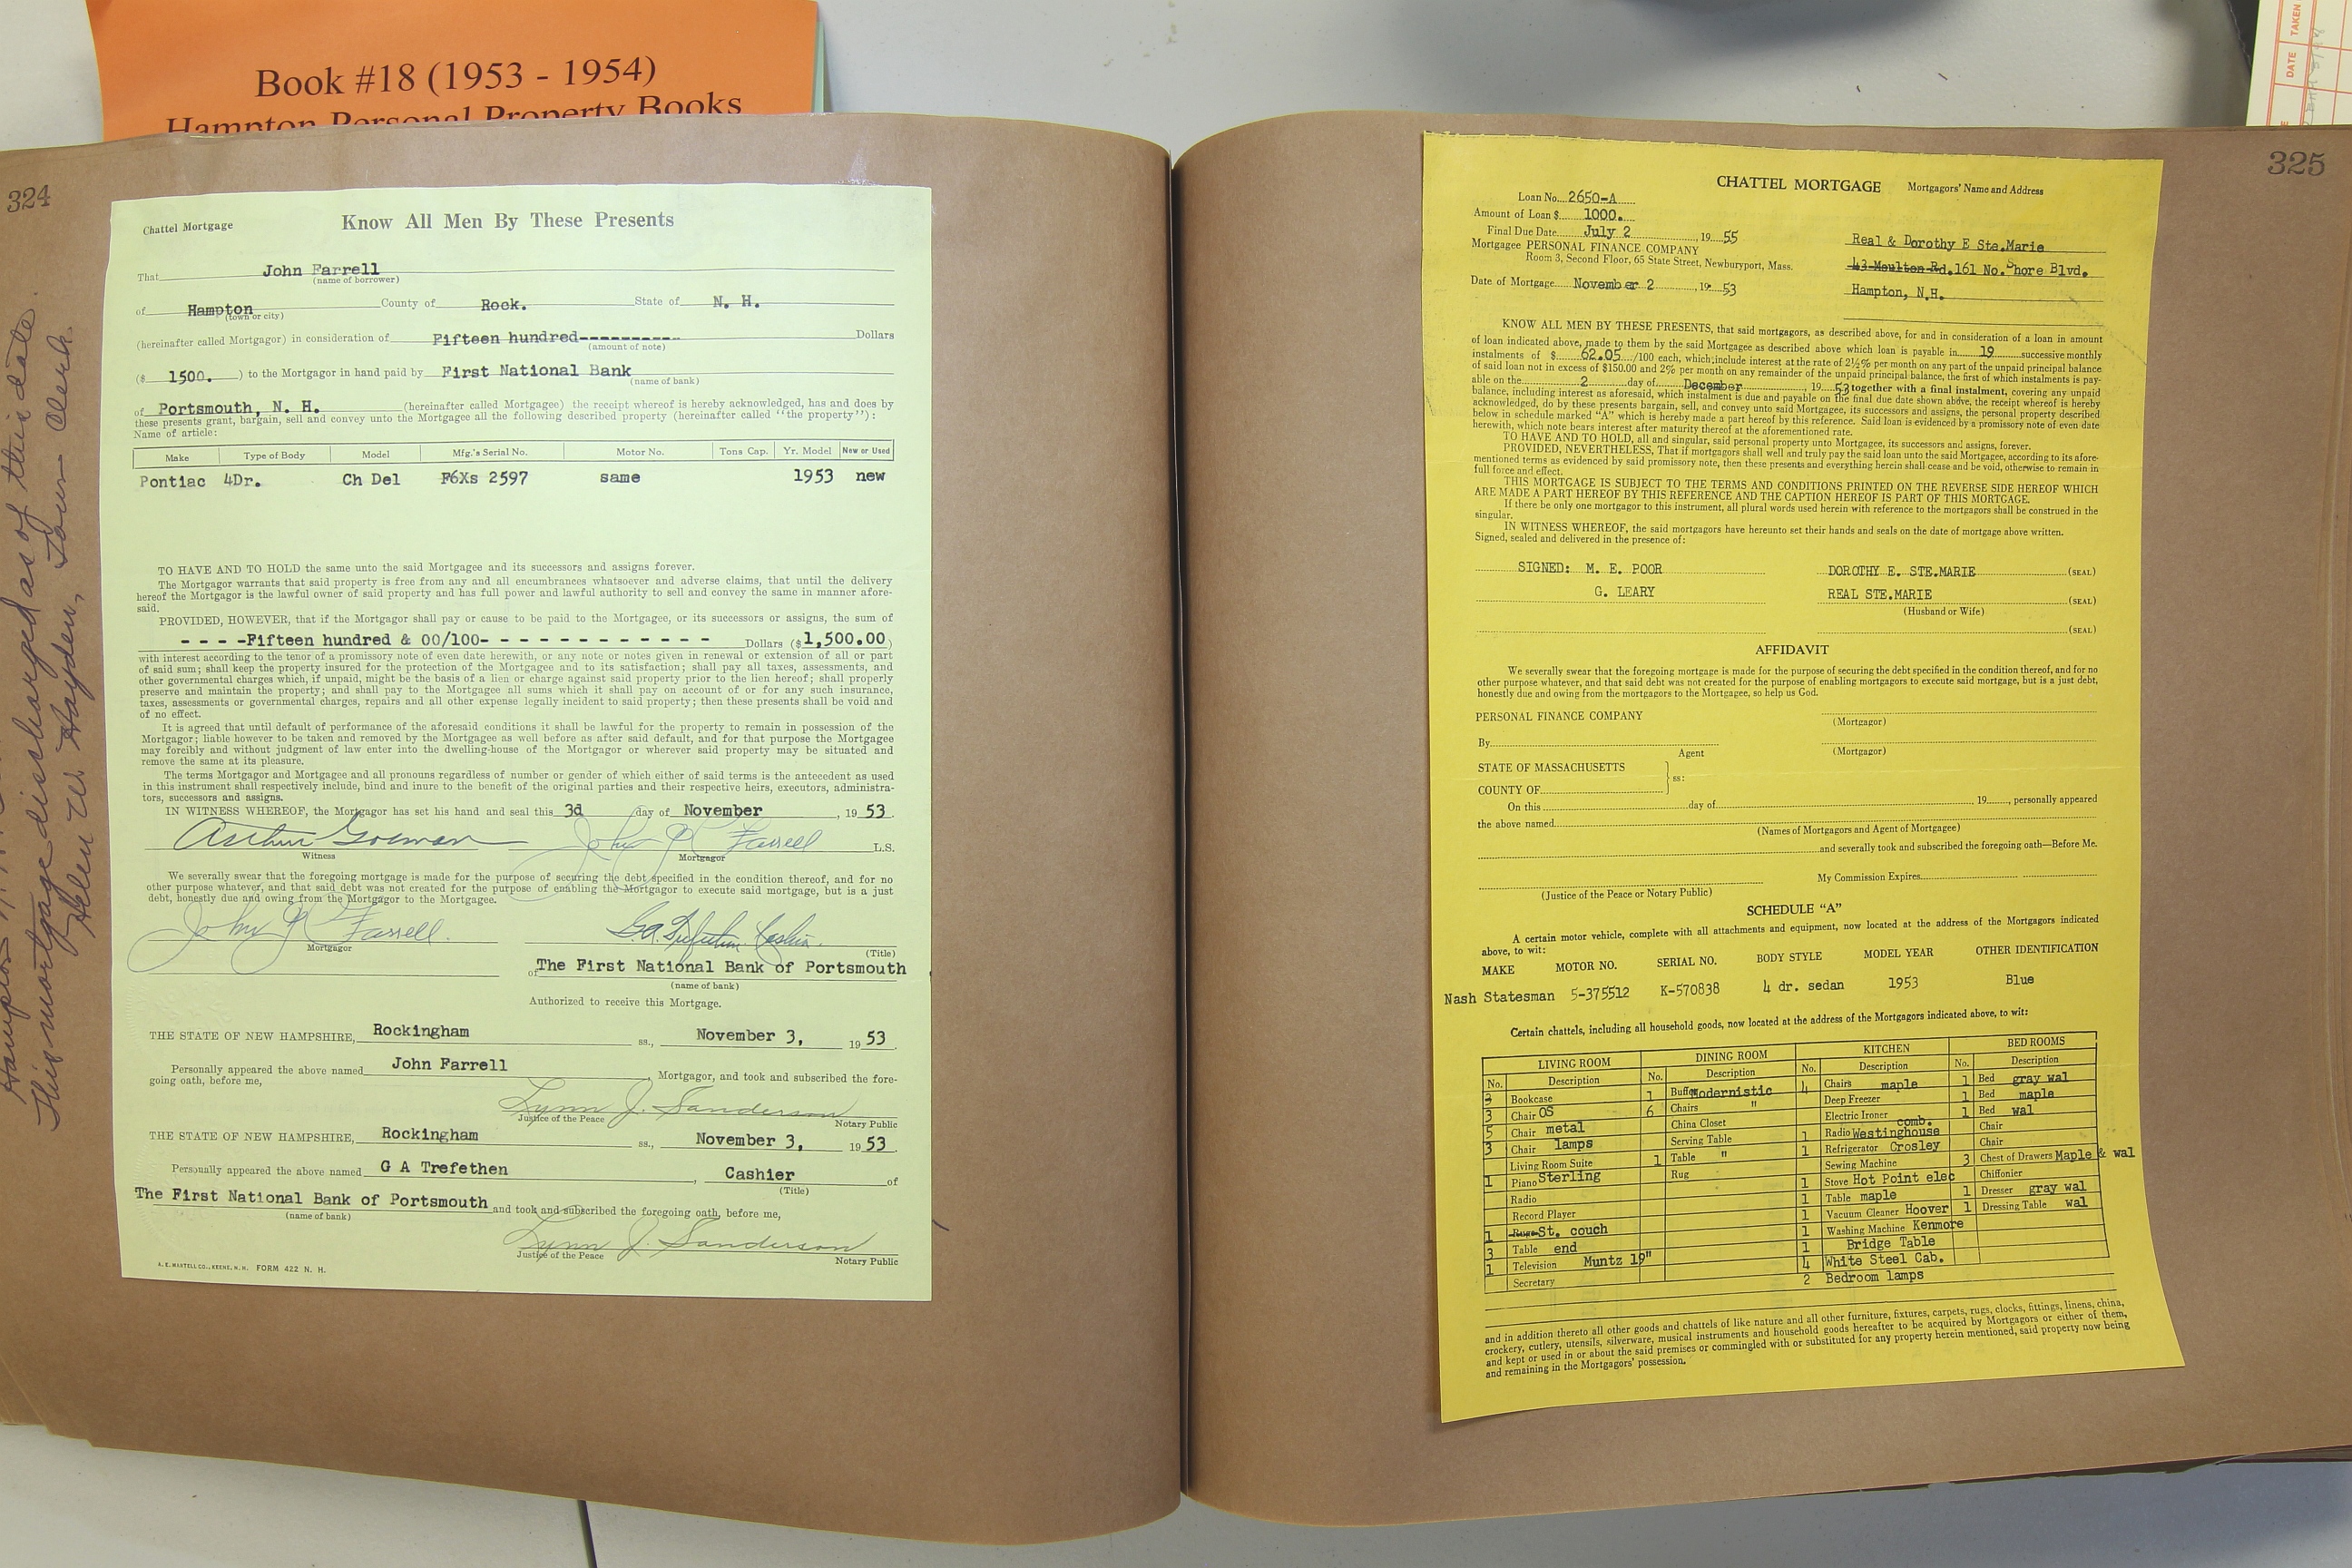 Book #18 (1953 - 1954)
Hampton Personal Property Books
324
Hampton
This mortgage discharged as of this date.
Helen W. Hayden, Town Clerk.
Chattel Mortgage
Know All Men By These Presents
That John Farrell
(name of borrower)
of Hampton County of Rock. State of N. H.
(town or city)
(hereinafter called Mortgagor) in consideration of Fifteen hundred---------- Dollars
(amount of note)
($ 1500. ) to the Mortgagor in hand paid by First National Bank
(name of bank)
of Portsmouth, N. H. (hereinafter called Mortgagee) the receipt whereof is hereby acknowledged, has and does by
these presents grant, bargain, sell and convey unto the Mortgagee all the following described property (hereinafter called "the property"):
Name of article:
Make Type of Body Model Mfg.'s Serial No. Motor No. Tons Cap. Yr. Model New or Used
Pontiac 4Dr. Ch Del P6Xs 2597 same 1953 new
TO HAVE AND TO HOLD the same unto the said Mortgagee and its successors and assigns forever.
The Mortgagor warrants that said property is free from any and all encumbrances whatsoever and adverse claims, that until the delivery
hereof the Mortgagor is the lawful owner of said property and has full power and lawful authority to sell and convey the same in manner afore-
said.
PROVIDED, HOWEVER, that if the Mortgagor shall pay or cause to be paid to the Mortgagee, or its successors or assigns, the sum of
- - - -Fifteen hundred & 00/100- - - - - - - - - - - - Dollars ($1,500.00)
with interest according to the tenor of a promissory note of even date herewith, or any note or notes given in renewal or extension of all or part
of said sum; shall keep the property insured for the protection of the Mortgagee and to its satisfaction; shall pay all taxes, assessments, and
other governmental charges which, if unpaid, might be the basis of a lien or charge against said property prior to the lien hereof; shall properly
preserve and maintain the property; and shall pay to the Mortgagee all sums which it shall pay on account of or for any such insurance,
taxes, assessments or governmental charges, repairs and all other expense legally incident to said property; then these presents shall be void and
of no effect.
It is agreed that until default of performance of the aforesaid conditions it shall be lawful for the property to remain in possession of the
Mortgagor; liable however to be taken and removed by the Mortgagee as well before as after said default, and for that purpose the Mortgagee
may forcibly and without judgment of law enter into the dwelling-house of the Mortgagor or wherever said property may be situated and
remove the same at its pleasure.
The terms Mortgagor and Mortgagee and all pronouns regardless of number or gender of which either of said terms is the antecedent as used
in this instrument shall respectively include, bind and inure to the benefit of the original parties and their respective heirs, executors, administra-
tors, successors and assigns.
IN WITNESS WHEREOF, the Mortgagor has set his hand and seal this 3d day of November, 19 53.
Arthur Gorman John J Farrell L.S.
Witness Mortgagor
We severally swear that the foregoing mortgage is made for the purpose of securing the debt specified in the condition thereof, and for no
other purpose whatever, and that said debt was not created for the purpose of enabling the Mortgagor to execute said mortgage, but is a just
debt, honestly due and owing from the Mortgagor to the Mortgagee.
John J Farrell. G.A. Trefethen Cashier.
Mortgagor (Title)
of The First National Bank of Portsmouth
(name of bank)
Authorized to receive this Mortgage.
THE STATE OF NEW HAMPSHIRE, Rockingham ss., November 3, 19 53.
Personally appeared the above named John Farrell, Mortgagor, and took and subscribed the fore-
going oath, before me,
Lynn J. Sanderson
Justice of the Peace Notary Public
THE STATE OF NEW HAMPSHIRE, Rockingham ss., November 3, 19 53
Personally appeared the above named G A Trefethen, Cashier of
(Title)
The First National Bank of Portsmouth and took and subscribed the foregoing oath, before me,
(name of bank)
Lynn J. Sanderson
Justice of the Peace Notary Public
A. E. MARTELL CO., KEENE, N. H. FORM 422 N. H.
DATE TAKEN
325
CHATTEL MORTGAGE Mortgagors' Name and Address
Loan No. 2650-A
Amount of Loan $ 1000.
Final Due Date July 2, 19 55
Mortgagee PERSONAL FINANCE COMPANY
Room 3, Second Floor, 65 State Street, Newburyport, Mass.
Date of Mortgage November 2, 19 53
Real & Dorothy E Ste.Marie
43 Moulton Rd. 161 No. Shore Blvd.
Hampton, N.H.
KNOW ALL MEN BY THESE PRESENTS, that said mortgagors, as described above, for and in consideration of a loan in amount
of loan indicated above, made to them by the said Mortgagee as described above which loan is payable in 19 successive monthly
instalments of $ 62.05 /100 each, which include interest at the rate of 2½% per month on any part of the unpaid principal balance
of said loan not in excess of $150.00 and 2% per month on any remainder of the unpaid principal balance, the first of which instalments is pay-
able on the 2 day of December, 19 53 together with a final instalment, covering any unpaid
balance, including interest as aforesaid, which instalment is due and payable on the final due date shown above, the receipt whereof is hereby
acknowledged, do by these presents bargain, sell, and convey unto said Mortgagee, its successors and assigns, the personal property described
below in schedule marked "A" which is hereby made a part hereof by this reference. Said loan is evidenced by a promissory note of even date
herewith, which note bears interest after maturity thereof at the aforementioned rate.
TO HAVE AND TO HOLD, all and singular, said personal property unto Mortgagee, its successors and assigns, forever.
PROVIDED, NEVERTHELESS, That if mortgagors shall well and truly pay the said loan unto the said Mortgagee, according to its afore-
mentioned terms as evidenced by said promissory note, then these presents and everything herein shall cease and be void, otherwise to remain in
full force and effect.
THIS MORTGAGE IS SUBJECT TO THE TERMS AND CONDITIONS PRINTED ON THE REVERSE SIDE HEREOF WHICH
ARE MADE A PART HEREOF BY THIS REFERENCE AND THE CAPTION HEREOF IS PART OF THIS MORTGAGE.
If there be only one mortgagor to this instrument, all plural words used herein with reference to the mortgagors shall be construed in the
singular.
IN WITNESS WHEREOF, the said mortgagors have hereunto set their hands and seals on the date of mortgage above written.
Signed, sealed and delivered in the presence of:
SIGNED: M. E. POOR DOROTHY E. STE.MARIE (SEAL)
G. LEARY REAL STE.MARIE (SEAL)
(Husband or Wife)
(SEAL)
AFFIDAVIT
We severally swear that the foregoing mortgage is made for the purpose of securing the debt specified in the condition thereof, and for no
other purpose whatever, and that said debt was not created for the purpose of enabling mortgagors to execute said mortgage, but is a just debt,
honestly due and owing from the mortgagors to the Mortgagee, so help us God.
PERSONAL FINANCE COMPANY
(Mortgagor)
By
Agent (Mortgagor)
STATE OF MASSACHUSETTS
ss:
COUNTY OF
On this day of 19, personally appeared
the above named
(Names of Mortgagors and Agent of Mortgagee)
and severally took and subscribed the foregoing oath—Before Me.
My Commission Expires
(Justice of the Peace or Notary Public)
SCHEDULE "A"
A certain motor vehicle, complete with all attachments and equipment, now located at the address of the Mortgagors indicated
above, to wit:
MAKE MOTOR NO. SERIAL NO. BODY STYLE MODEL YEAR OTHER IDENTIFICATION
Nash Statesman 5-375512 K-570838 4 dr. sedan 1953 Blue
Certain chattels, including all household goods, now located at the address of the Mortgagors indicated above, to wit:
LIVING ROOM DINING ROOM KITCHEN BED ROOMS
No. Description No. Description No. Description No. Description
Bookcase 1 Buffet Modernistic 4 Chairs maple 1 Bed gray wal
3 Chair OS 6 Chairs " Deep Freezer 1 Bed maple
5 Chair metal China Closet Electric Ironer 1 Bed wal
3 Chair lamps Serving Table 1 Radio Westinghouse comb. Chair
Living Room Suite 1 Table " 1 Refrigerator Crosley Chair
1 Piano Sterling Rug Sewing Machine 3 Chest of Drawers Maple & wal
Radio 1 Stove Hot Point elec Chiffonier
Record Player 1 Table maple 1 Dresser gray wal
1 Rug St. couch 1 Vacuum Cleaner Hoover 1 Dressing Table wal
3 Table end 1 Washing Machine Kenmore
1 Television Muntz 19" 1 Bridge Table
Secretary 4 White Steel Cab.
2 Bedroom lamps
and in addition thereto all other goods and chattels of like nature and all other furniture, fixtures, carpets, rugs, clocks, fittings, linens, china,
crockery, cutlery, utensils, silverware, musical instruments and household goods hereafter to be acquired by Mortgagors or either of them,
and kept or used in or about the said premises or commingled with or substituted for any property herein mentioned, said property now being
and remaining in the Mortgagors' possession.